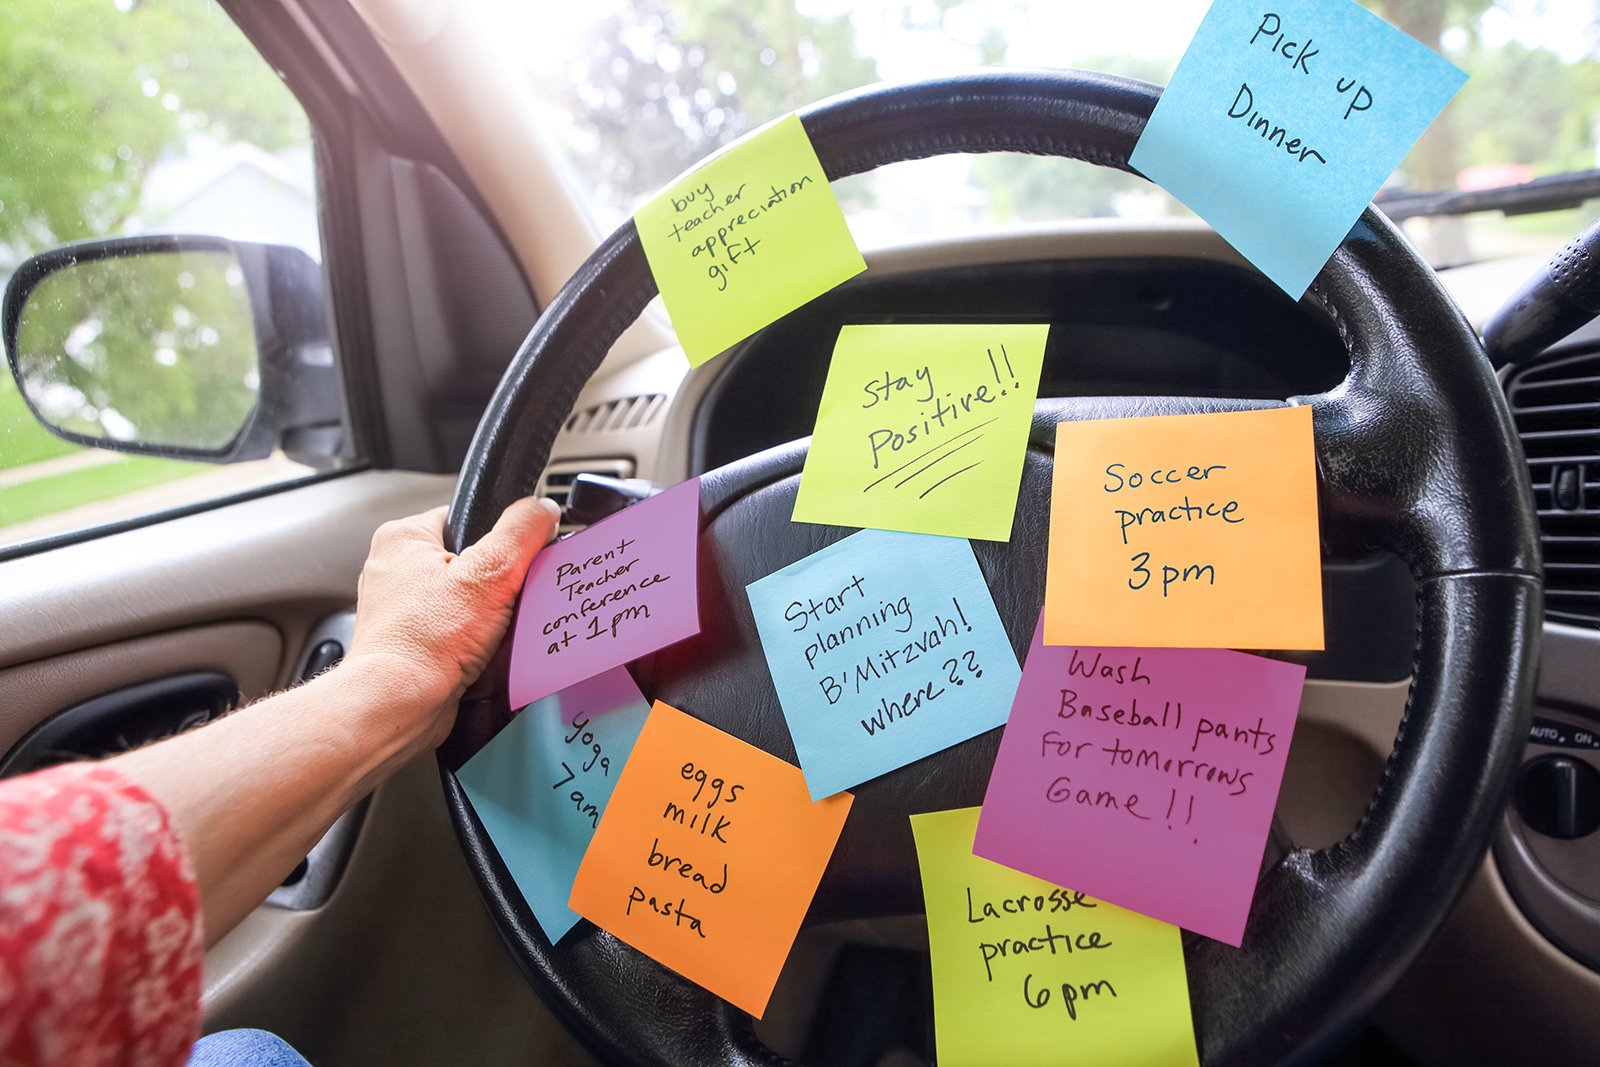 Pick up
Dinner
buy
teacher
appreciation
gift
Stay
Positive!!
Soccer
practice
3pm
Parent
Teacher
conference
at 1pm
Start
planning
B'Mitzvah!
where??
Wash
Baseball pants
For tomorrows
Game!!
yoga
7am
eggs
milk
bread
pasta
Lacrosse
practice
6pm
AUTO. ON.